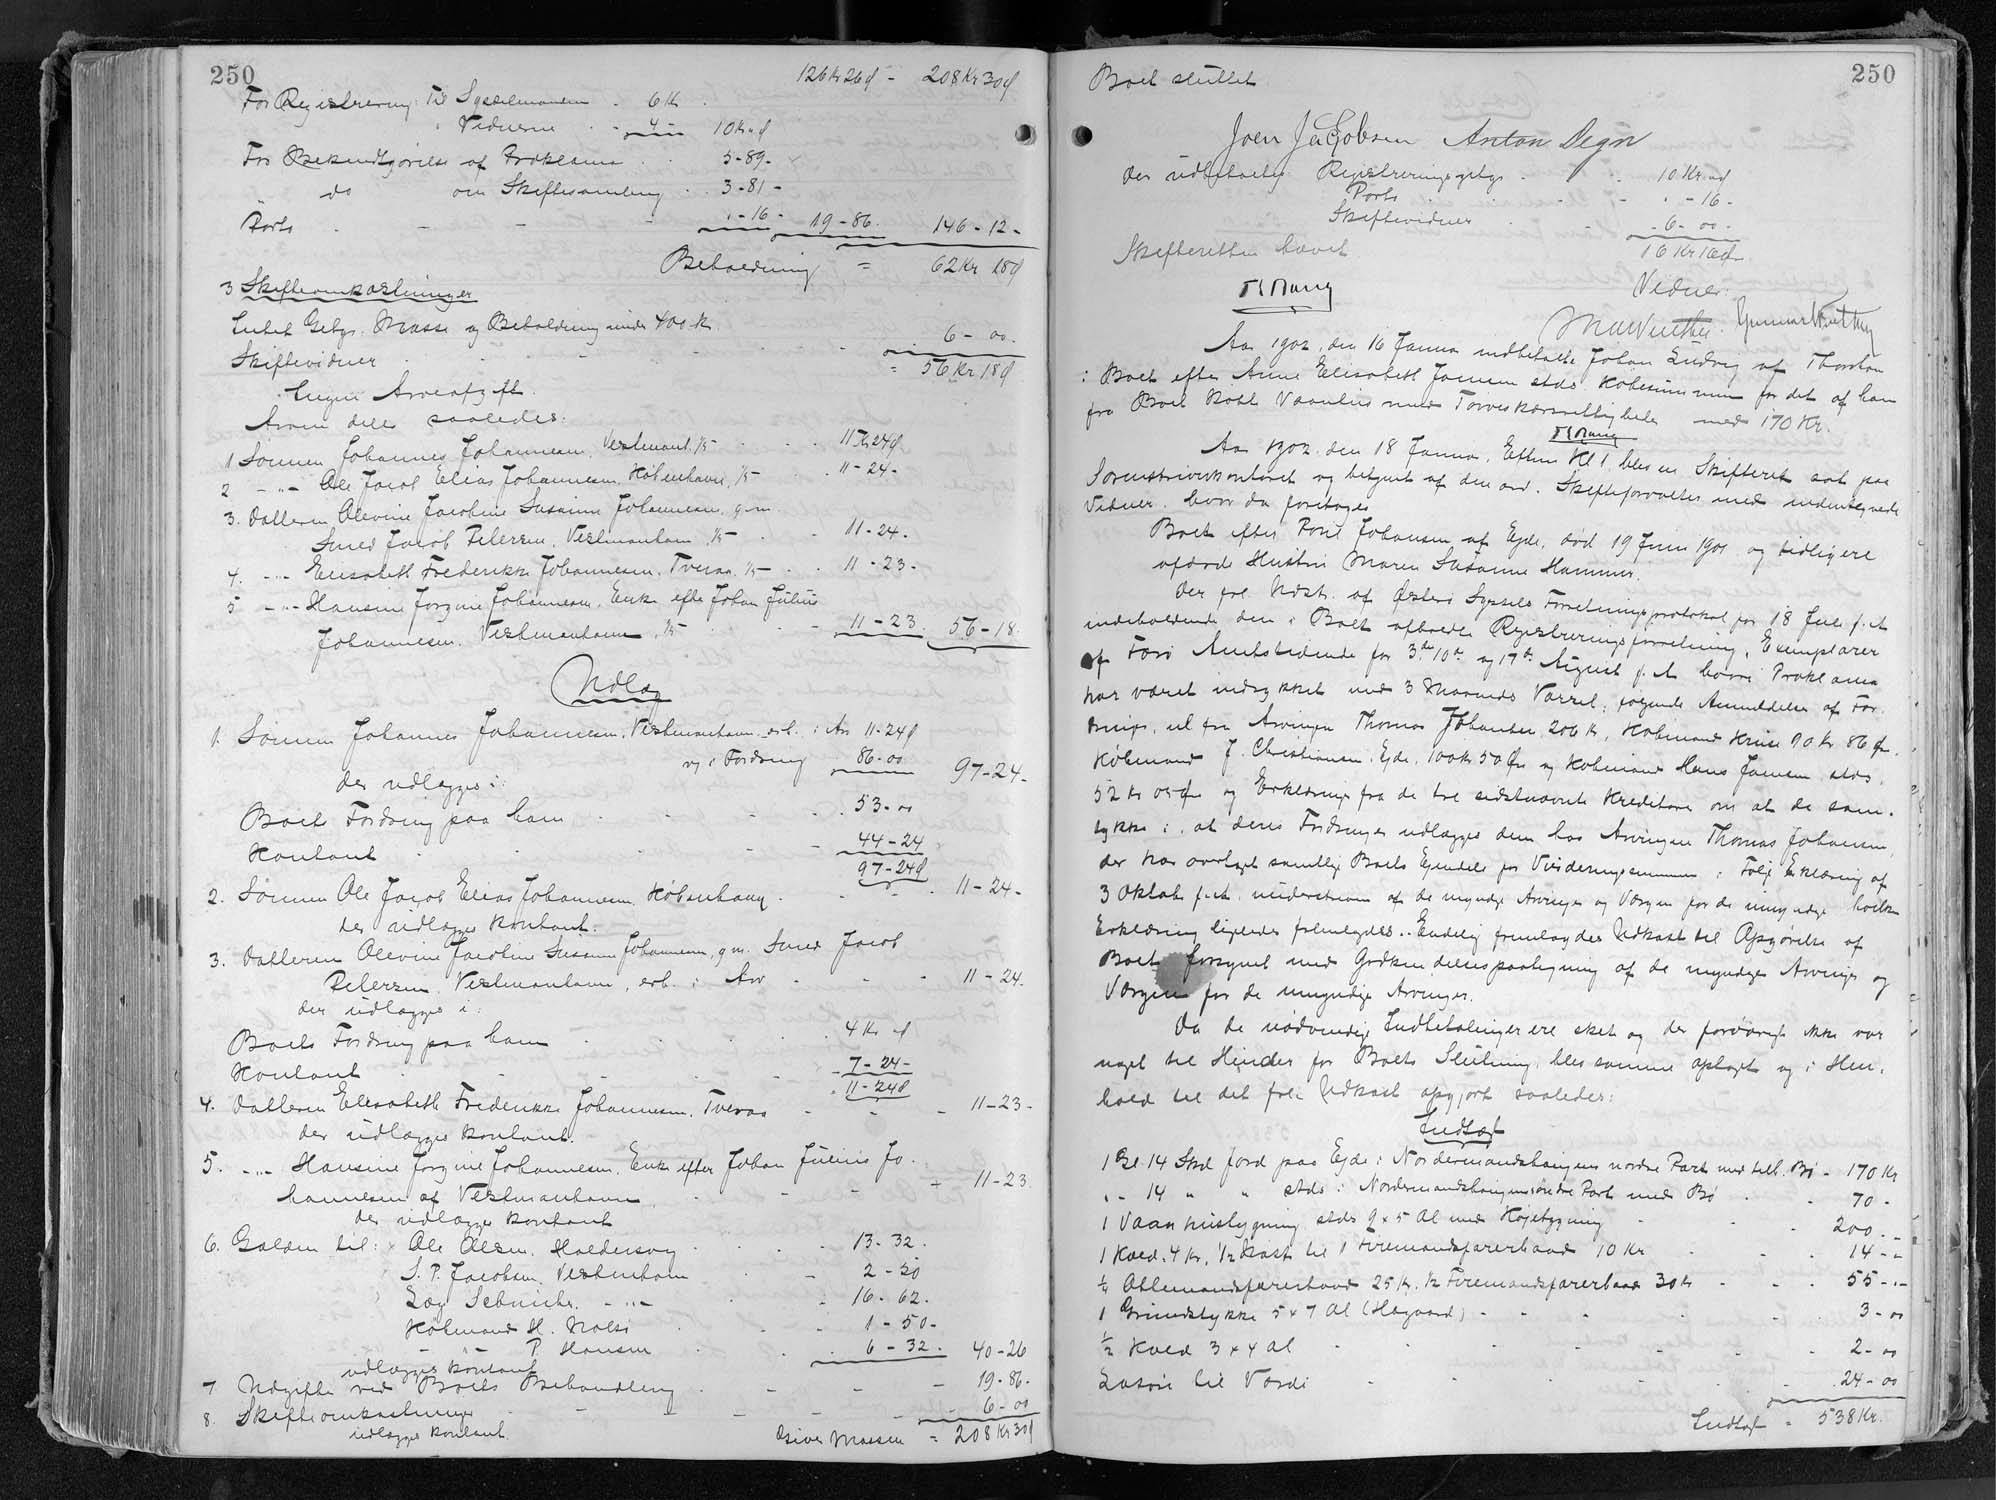 250
126 Kr 26 Ø - 208 Kr 30 Ø
For Registrering: Til Sysselmanden - 6 Kr
" Vidnerne - 4 - 10 Kr " Ø
For Bekendtgørelse af Proklama 5-89-
do om Skiftesamling 3-81-
Porto " -16- 19-86. 146-12-
Beholdning = 62 Kr 18 Ø
3 Skifteomkostninger
Intet Gebyr. Masse og Beholdning under 400 Kr.
Skiftevidner 6-00.
= 56 Kr 18 Ø
Ingen Arveafgift.
Arven deles saaledes:
1 Sønnen Johannes Johannesen, Vestmanh. 1/5 11 Kr 24 Ø
2 -"- Ole Jacob Elias Johannesen, København, 1/5 - 11-24-
3. Datteren Olevine Jacobine Susanne Johannesen, g. m.
Smed Jacob Petersen, Vestmanhavn, 1/5 - 11-24-
4. -"- Elisabeth Frederikke Johannesen, Tveraa, 1/5 - 11-23-
5 -"- Hansine Jorgine Johannesen, Enke efter Johan Julius
Johannesen, Vestmanhavn, 1/5 11-23. 56-18.
Udlæg
1. Sønnen Johannes Johannesen, Vestmanhavn, erh. i Arv 11-24 Ø
og i Fordring 86-00 97-24-
der udlægges i:
Boets Fordring paa ham 53-00
Kontant 44-24
97-24 Ø
2. Sønnen Ole Jacob Elias Johannesen, København - 11-24-
der udlægges kontant.
3. Datteren Olevine Jacobine Susanne Johannesen, g. m. Smed Jacob
Petersen, Vestmanhavn, erh. i Arv - 11-24.
der udlægges i:
Boets Fordring paa ham 4 Kr " Ø
Kontant 7-24-
11-24 Ø
4. Datteren Elisabeth Frederikke Johannesen, Tveraa - 11-23-
der udlægges kontant.
5. -"- Hansine Jorgine Johannesen, Enke efter Johan Julius Jo-
hannesen af Vestmanhavn - 11-23.
der udlægges kontant
6. Gælden til: Ole Olsen, Haldersvig 13-32.
S. P. Jacobsen, Vestmanhavn 2-50
Læge -"- 16-62.
Købmand H. Nolsø 1-50-
-"- P. Hansen 6-32. 40-26
udlægges kontant
7 Udgifter ved Boets Behandling - 19-86.
8. Skifteomkostninger 6-00
udlægges kontant.
Giver Massen = 208 Kr 30 Ø
250
Boet sluttet
Joen Jacobsen Anton Degn
Der udbetaltes Registreringsgebyr 10 Kr " Ø
Porto " -16-
Skiftevidner -6-00-
16 Kr 16 Ø
Skifteretten hævet
Vidner:
MAWinther.
Aar 1902, den 16 Januar indbetalte Johan Ludvig af Thorshavn
i Boet efter Anne Elisabeth Jensen stds Købesummen for det af ham
fra Boet købt Vaanhus med Tørveskærsrettigheder med 170 Kr.
Aar 1902 den 18 Januar, Efterm. Kl 1 blev en Skifteret sat paa
Sorenskriverkontoret og betjent af den ord. Skifteforvalter med undertegnede
Vidner, hvor da foretoges
Boet efter Poul Johansen af Ejde, død 19 Juni 1901 og tidligere
afdøde Hustru Maren Susanne Hammer.
Der frl. Udskr. af Østerø Syssels Forretningsprotokol for 18 Juli f. A
indeholdende den i Boet afholdte Registreringsforretning, Exemplarer
af Færø Amtstidende for 3die, 10de og 17de August f. A hvori Proklama
har været indrykket med 3 Maaneders Varsel, følgende Anmeldelser af For-
dringer, nl fra Arvingen Thomas Johansen 206 Kr, Købmand 70 Kr 86 Øre,
Købmand J. Christiansen, Ejde, 100 Kr 50 Øre og Købmand Hans Jensen stds,
52 Kr 05 Øre og Erklæringer fra de tre sidstnævnte Kreditorer om at de sam-
tykke i, at deres Fordringer udlægges dem hos Arvingen Thomas Johansen,
der har overtaget samtlige Boets Ejendele for Vurderingssummen i Følge Erklæring af
3 Oktob f. A. underskreven af de myndige Arvinger og Værgen for de umyndige hvilken
Erklæring ligeledes fremlagdes. Endelig fremlagdes Udkast til Opgørelse af
Boet forsynet med Godkendelsespaategning af de myndige Arvinger og
Værgen for de umyndige Arvinger.
Da de nødvendige Indbetalinger ere sket og der forøvrigt ikke var
noget til Hinder for Boets Slutning, blev samme optaget og i Hen-
hold til det frl. Udkast opgjort saaledes:
Indtægt
1 Gl. 14 Skd Jord paa Ejde i Nordermandshaugens nordre Part med tilh. Bø - 170 Kr
" - 14 " " stds i Nordermandshaugens søndre Part med Bø - 70 -
1 Vaanhusbygning stds 9 x 5 Al med Højebygning - 200 - "
1 Kved. 4 Kr, 1/2 Nøst til 1 Firemandsfarerbaad 10 Kr - 14 - "
1/4 Ottemandsfarerbaad 25 Kr. 1/2 Firemandsfarerbaad 30 Kr - 55 - "
1 Grundstykke 5 x 7 Al - 3-00
1/2 Kved 3 x 4 Al - 2-00
Løsøre til Værdi - 24-00
Indtægt = 538 Kr.